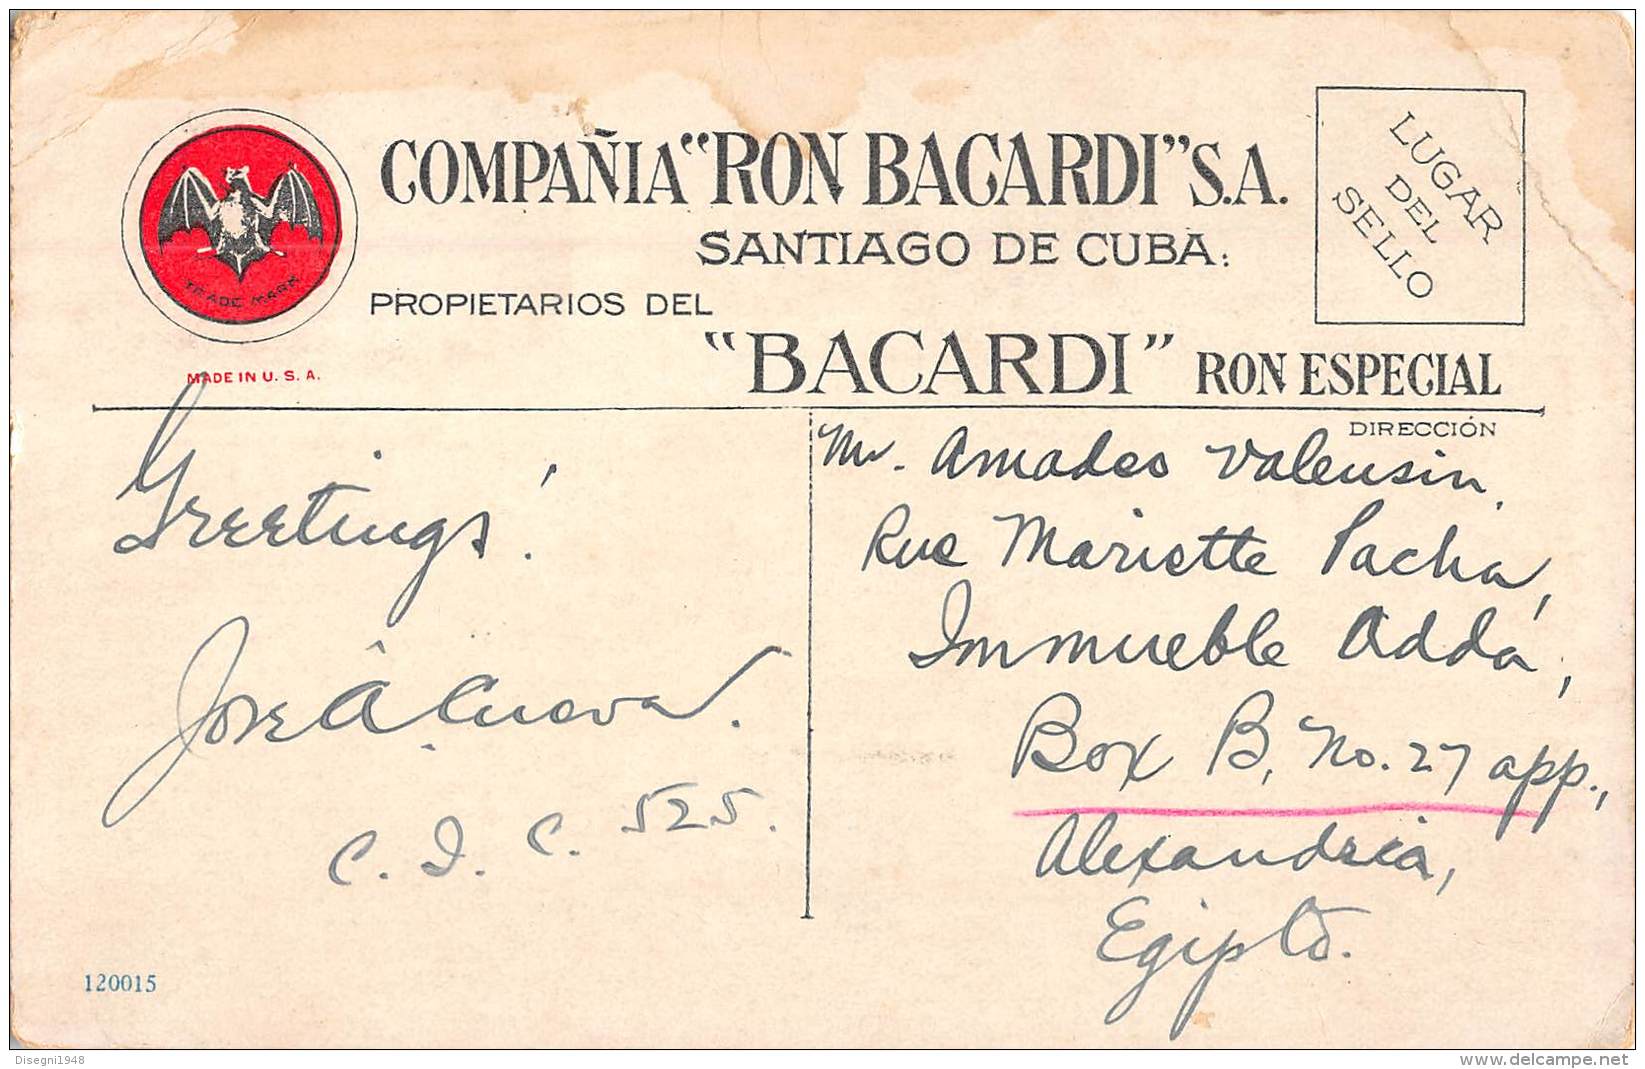 COMPAÑIA "RON BACARDI" S.A.
SANTIAGO DE CUBA:
PROPIETARIOS DEL
"BACARDI" RON ESPECIAL
LUGAR
DEL
SELLO
TRADE MARK
MADE IN U. S. A.
DIRECCIÓN
Greetings!
José A Cueva.
C. I. C. 525.
Mr. Amadeo Valensin,
Rue Mariette Pacha,
Immueble Adda,
Box B, No. 27 app.,
Alexandria,
Egipto.
120015
Disegni1948
www.delcampe.net